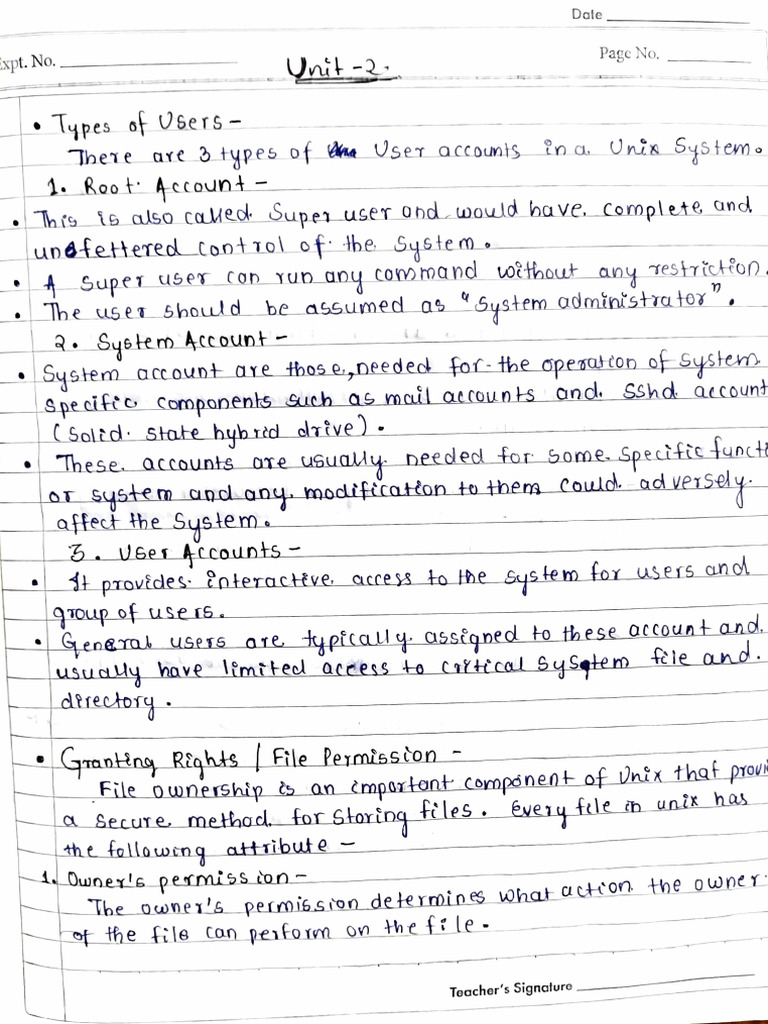 Date
Expt. No.
Page No.
Unit-2.
• Types of Users -
There are 3 types of User accounts in a Unix System.
1. Root Account -
• This is also called Super user and would have complete and
unfettered control of the system.
• A super user can run any command without any restriction.
• The user should be assumed as "System administrator".
2. System Account -
• System account are those, needed for the operation of system
specific components such as mail accounts and sshd account
(solid state hybrid drive).
• These accounts are usually needed for some specific functi
or system and any modification to them could adversely
affect the system.
3. User Accounts -
• It provides interactive access to the system for users and
group of users.
• General users are typically assigned to these account and
usually have limited access to critical system file and
directory.
• Granting Rights / File Permission -
File ownership is an important component of Unix that provi
a secure method for storing files. Every file in unix has
the following attribute -
1. Owner's permission -
The owner's permission determines what action the owner
of the file can perform on the file.
Teacher's Signature